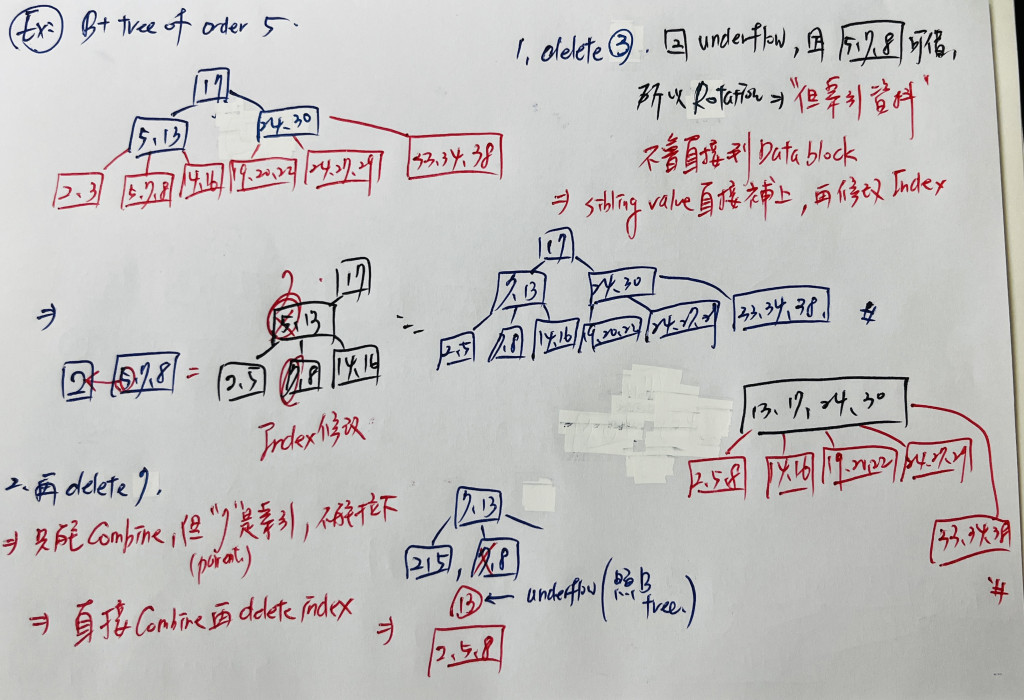 Ex: B+ tree of order 5.
17
5、13
24、30
2、3
5、7、8
14、16
19、20、22
24、27、29
33、34、38
1、delete ③. 2 underflow, 且 5、7、8 可借,
所以 Rotation ⇒ "但索引資料"
不會直接到 Data block
⇒ sibling value 直接補上, 再修改 Index
⇒
2 ← 5、7、8 =
7
17
5、13
2、5
7、8
14、16
Index 修改
17
7、13
24、30
2、5
7、8
14、16
19、20、22
24、27、29
33、34、38
#
13、17、24、30
2、5、8
14、16
19、20、22
24、27、29
33、34、38
#
2、再 delete 7.
⇒ 只能 Combine, 但 "7" 是索引, 不能拉下
(parent)
⇒ 直接 Combine 再 delete index
7、13
2、5, 7、8
13 ← underflow (照B tree.)
⇒
2、5、8